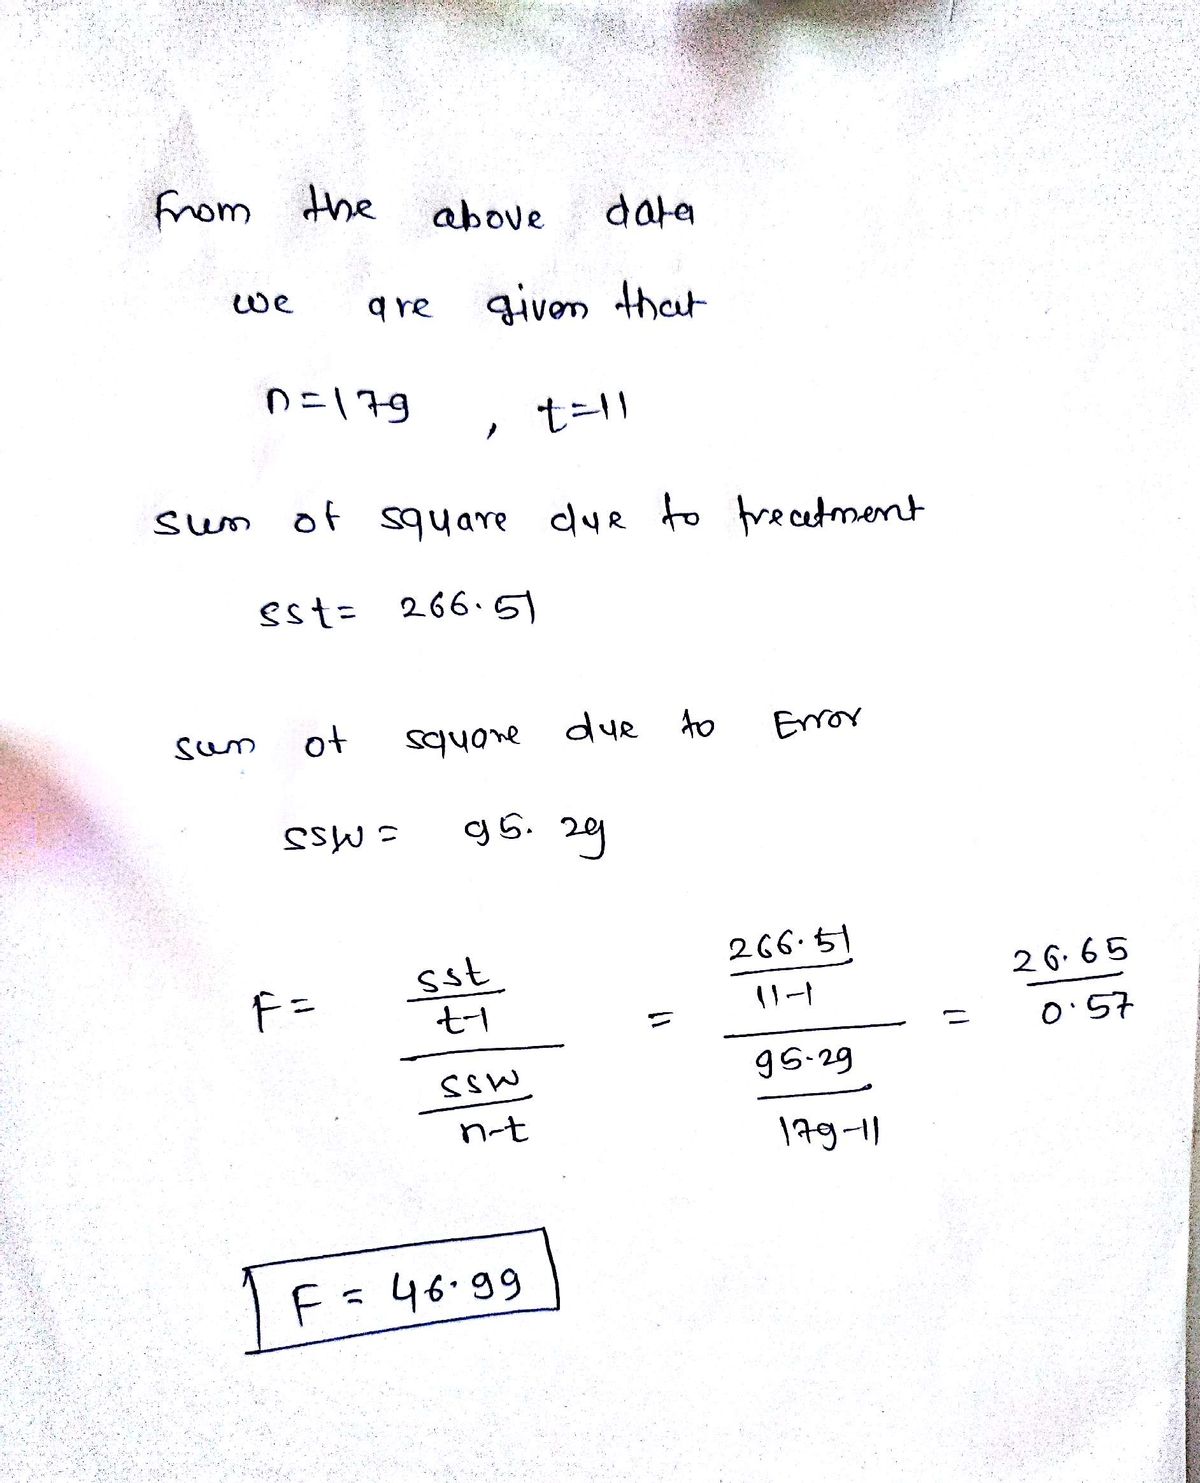 From the above data
we are given that
n=179 , t=11
sum of square due to treatment
sst= 266.51
sum of square due to Error
SSW= 95.29
F= sst/t-1 / ssw/n-t = 266.51/11-1 / 95.29/179-11 = 26.65/0.57
F = 46.99